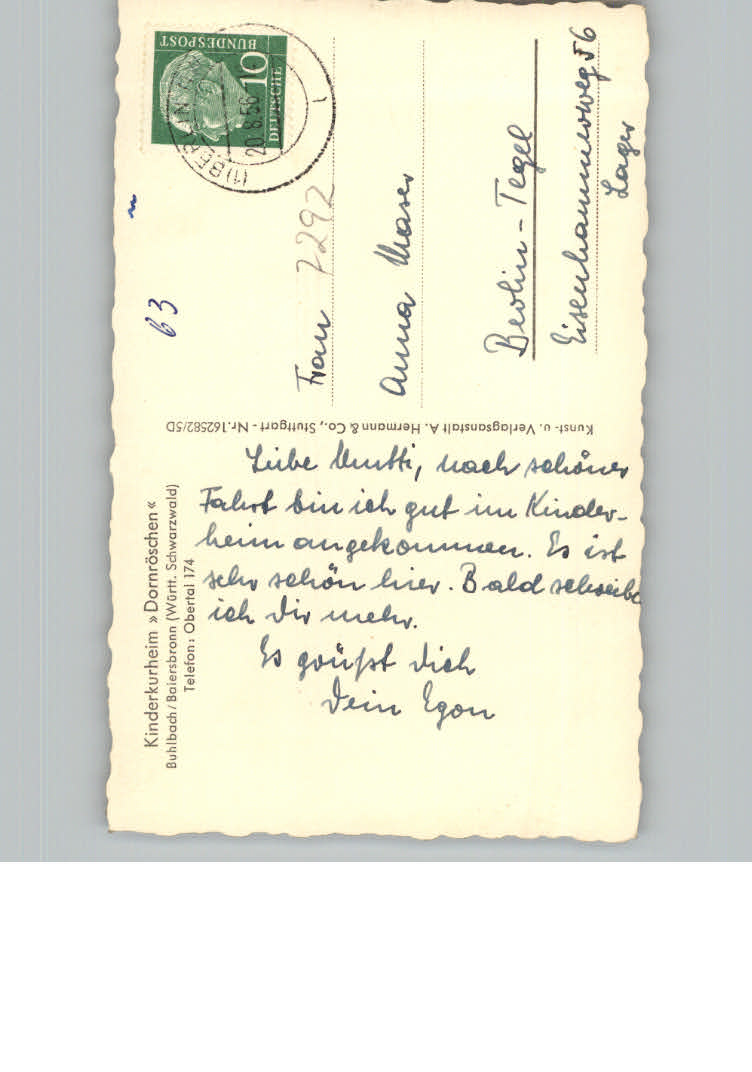 Kinderkurheim »Dornröschen«
Buhlbach/Baiersbronn (Württ. Schwarzwald)
Telefon: Obertal 174
Liebe Mutti, nach schöner
Fahrt bin ich gut im Kinder-
heim angekommen. Es ist
sehr schön hier. Bald schreibe
ich Dir mehr.
Es grüßt Dich
Dein Egon
Kunst- u. Verlagsanstalt A. Hermann & Co., Stuttgart - Nr. 162582/5D
63
DEUTSCHE
BUNDESPOST
10
(1) BERLIN
20.8.56
Frau 7292
Anna Maser
Berlin-Tegel
Eisenhammerweg 56
Lager